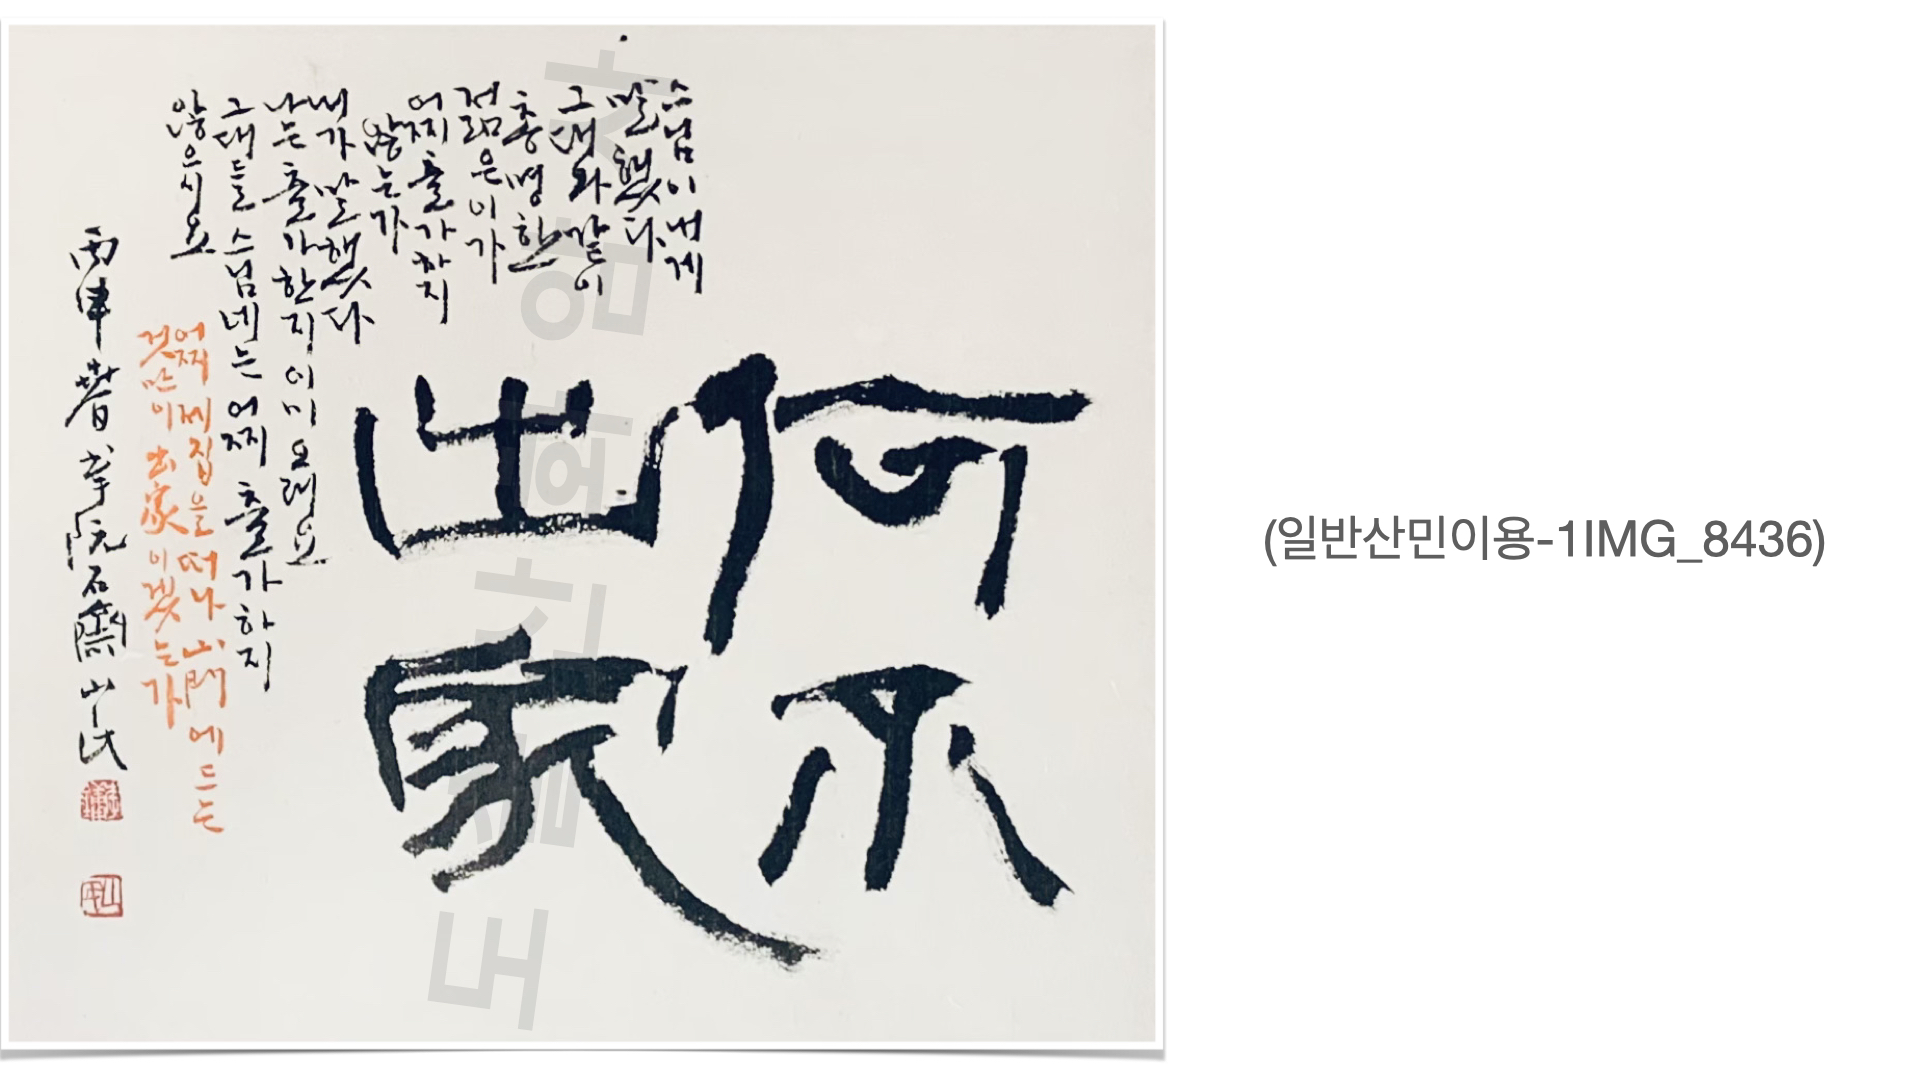 何不
出家
스님이 내게
말했다
그대와 같이
총명한
젊은이가
어찌 출가하지
않는가
내가 말했다
나는 출가한지 이미 오래요
그대들 스님네는 어찌 출가하지
않으시오
어찌 제집을 떠나 山門에 드는
것만이 出家이겠는가
丙申 春 李 阮石齋 山民
(일반산민이용-1IMG_8436)